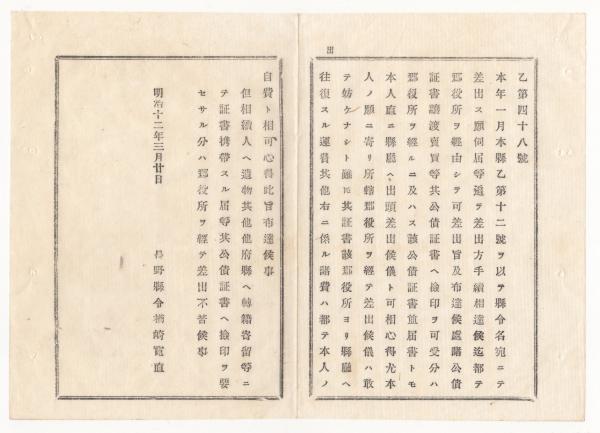 出
乙第四十八號
本年一月本縣乙第十二號ヲ以テ縣令名宛ニテ
差出ス願伺届等適テ差出方手續相達候迄都テ
郡役所ヲ經由シテ可差出旨及布達候處諸公債
証書讓渡賣買等其公債証書ヘ撿印ヲ可受分ハ
郡役所ヲ經ルニ及ハス該公債証書並届書トモ
本人直ニ縣廳ヘ出頭差出候儀ト可相心得尤本
人ノ願ニ寄リ所轄郡役所ヲ經テ差出候儀ハ敢
テ妨ケナシト雖𪜈其証書該郡役所ヨリ縣廳ヘ
往復スル運費其他右ニ係ル諸費ハ都テ本人ノ
自費ト相可心得此旨布達候事
但相續人ヘ遺物其他他府縣ヘ轉籍寄留等ニ
テ証書携帶スル届等其公債証書ヘ撿印ヲ要
セサル分ハ郡役所ヲ經テ差出不苦候事
明治十二年三月廿日
長野縣令楢崎寬直